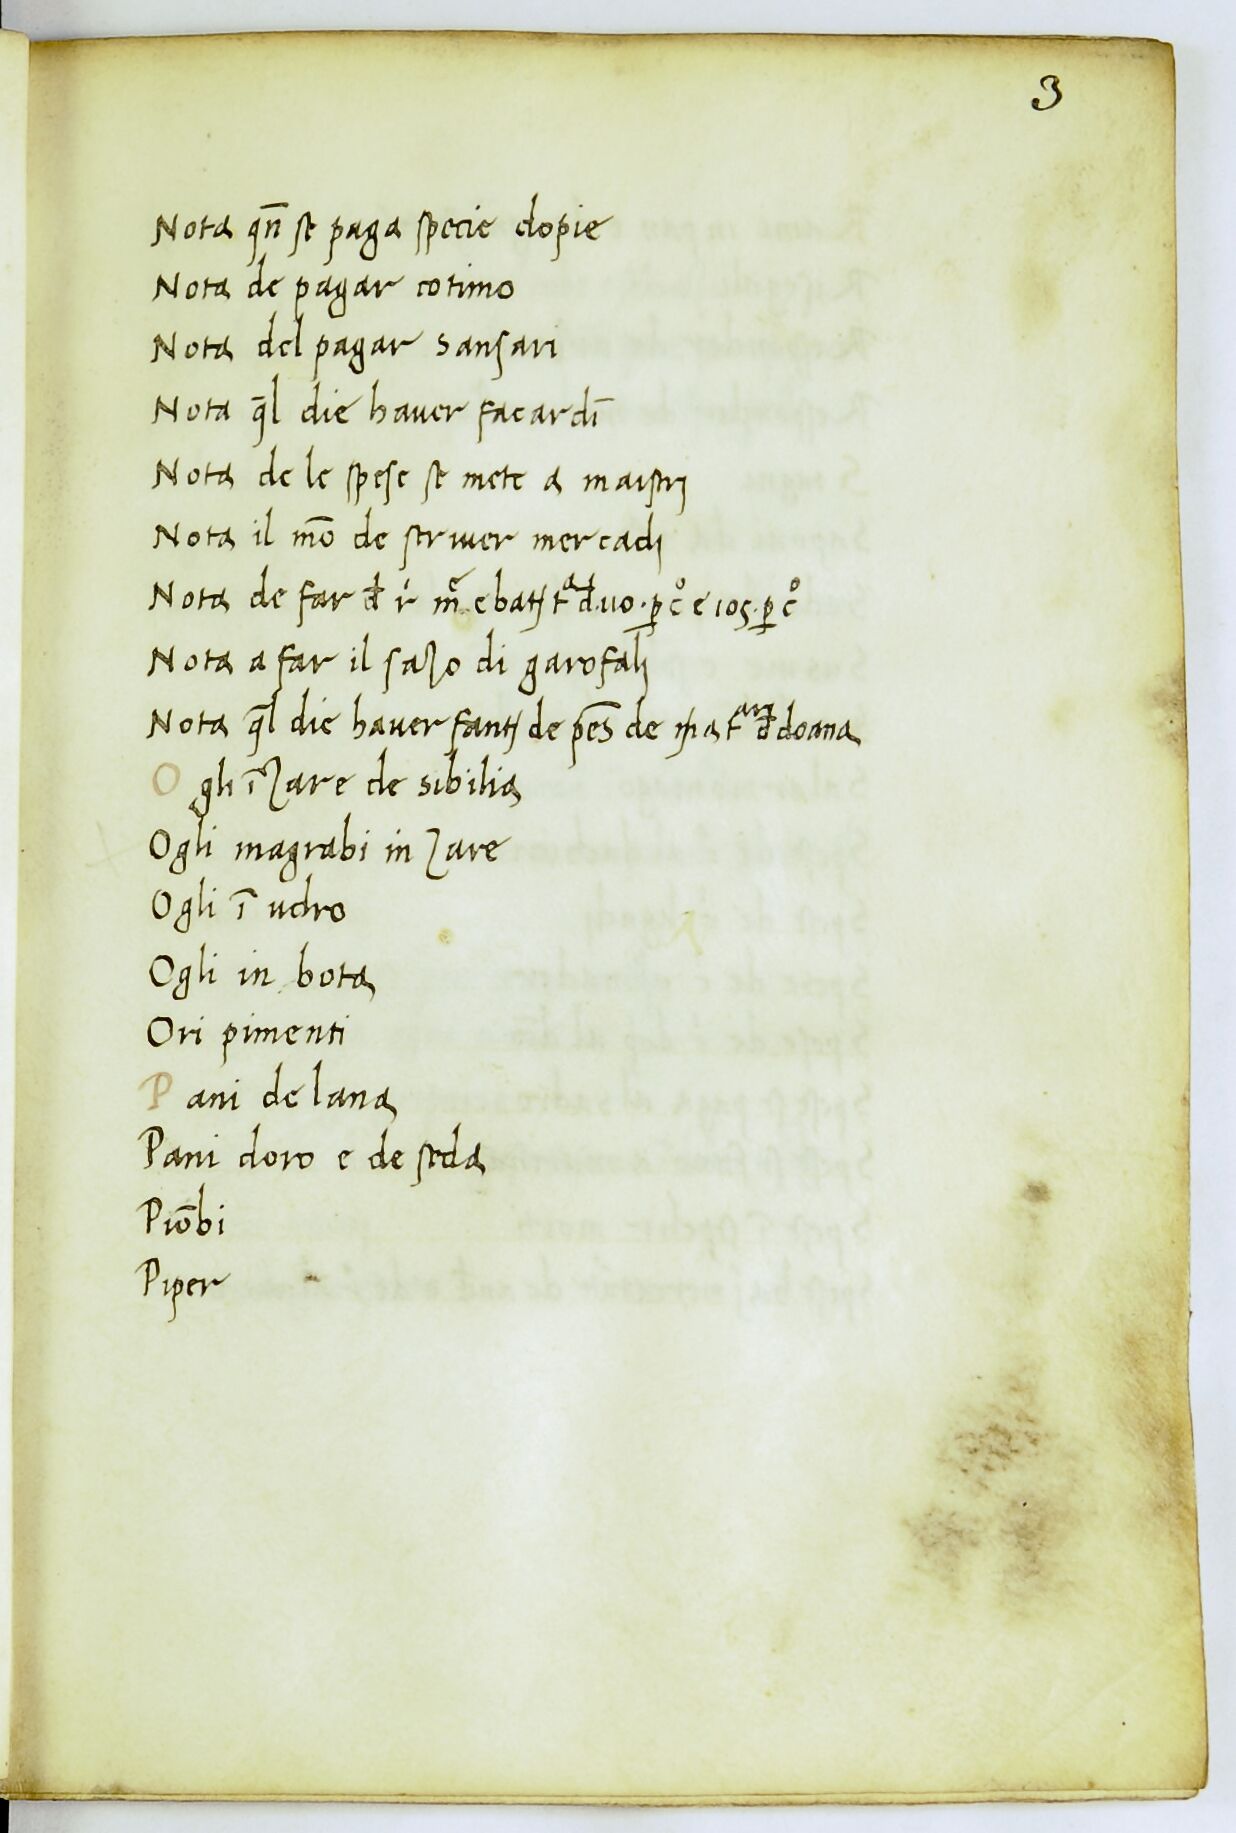 3
Nota qn̄ se paga specie dopie
Nota de pagar cotimo
Nota del pagar sansari
Nota q̄l die haver facardī
Nota de le spese se mete a maistrj
Nota il mō de scriver mercadj
Nota de far e batj
Nota a far il sazo di garofalj
Nota q̄l die haver fantj de de doana
Ogli ī zare de sibilia
Ogli magrabi in zare
Ogli ī udro
Ogli in bota
Ori pimenti
Pani de lana
Pani doro e de seda
Piōbi
Piper